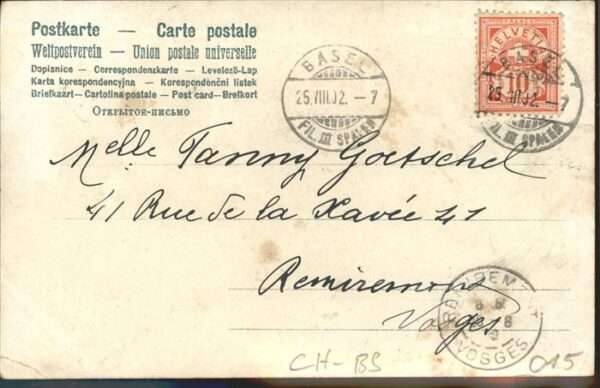 Postkarte — Carte postale
Weltpostverein — Union postale universelle
Dopisnice — Correspondenzkarte — Levelező-Lap
Karta korespondencyjna — Korespondenční lístek
Briefkaart — Cartolina postale — Post card — Brefkort
Открытое-письмо
BASEL
25.VIII.02. — 7
FIL. III SPALEN
HELVETIA
BASEL
25.VIII.02. — 7
FIL. III SPALEN
Melle Fanny Goetschel
41 Rue de la Xavée 41
Remiremont
Vosges
REMIREMONT
VOSGES
CH-BS
015